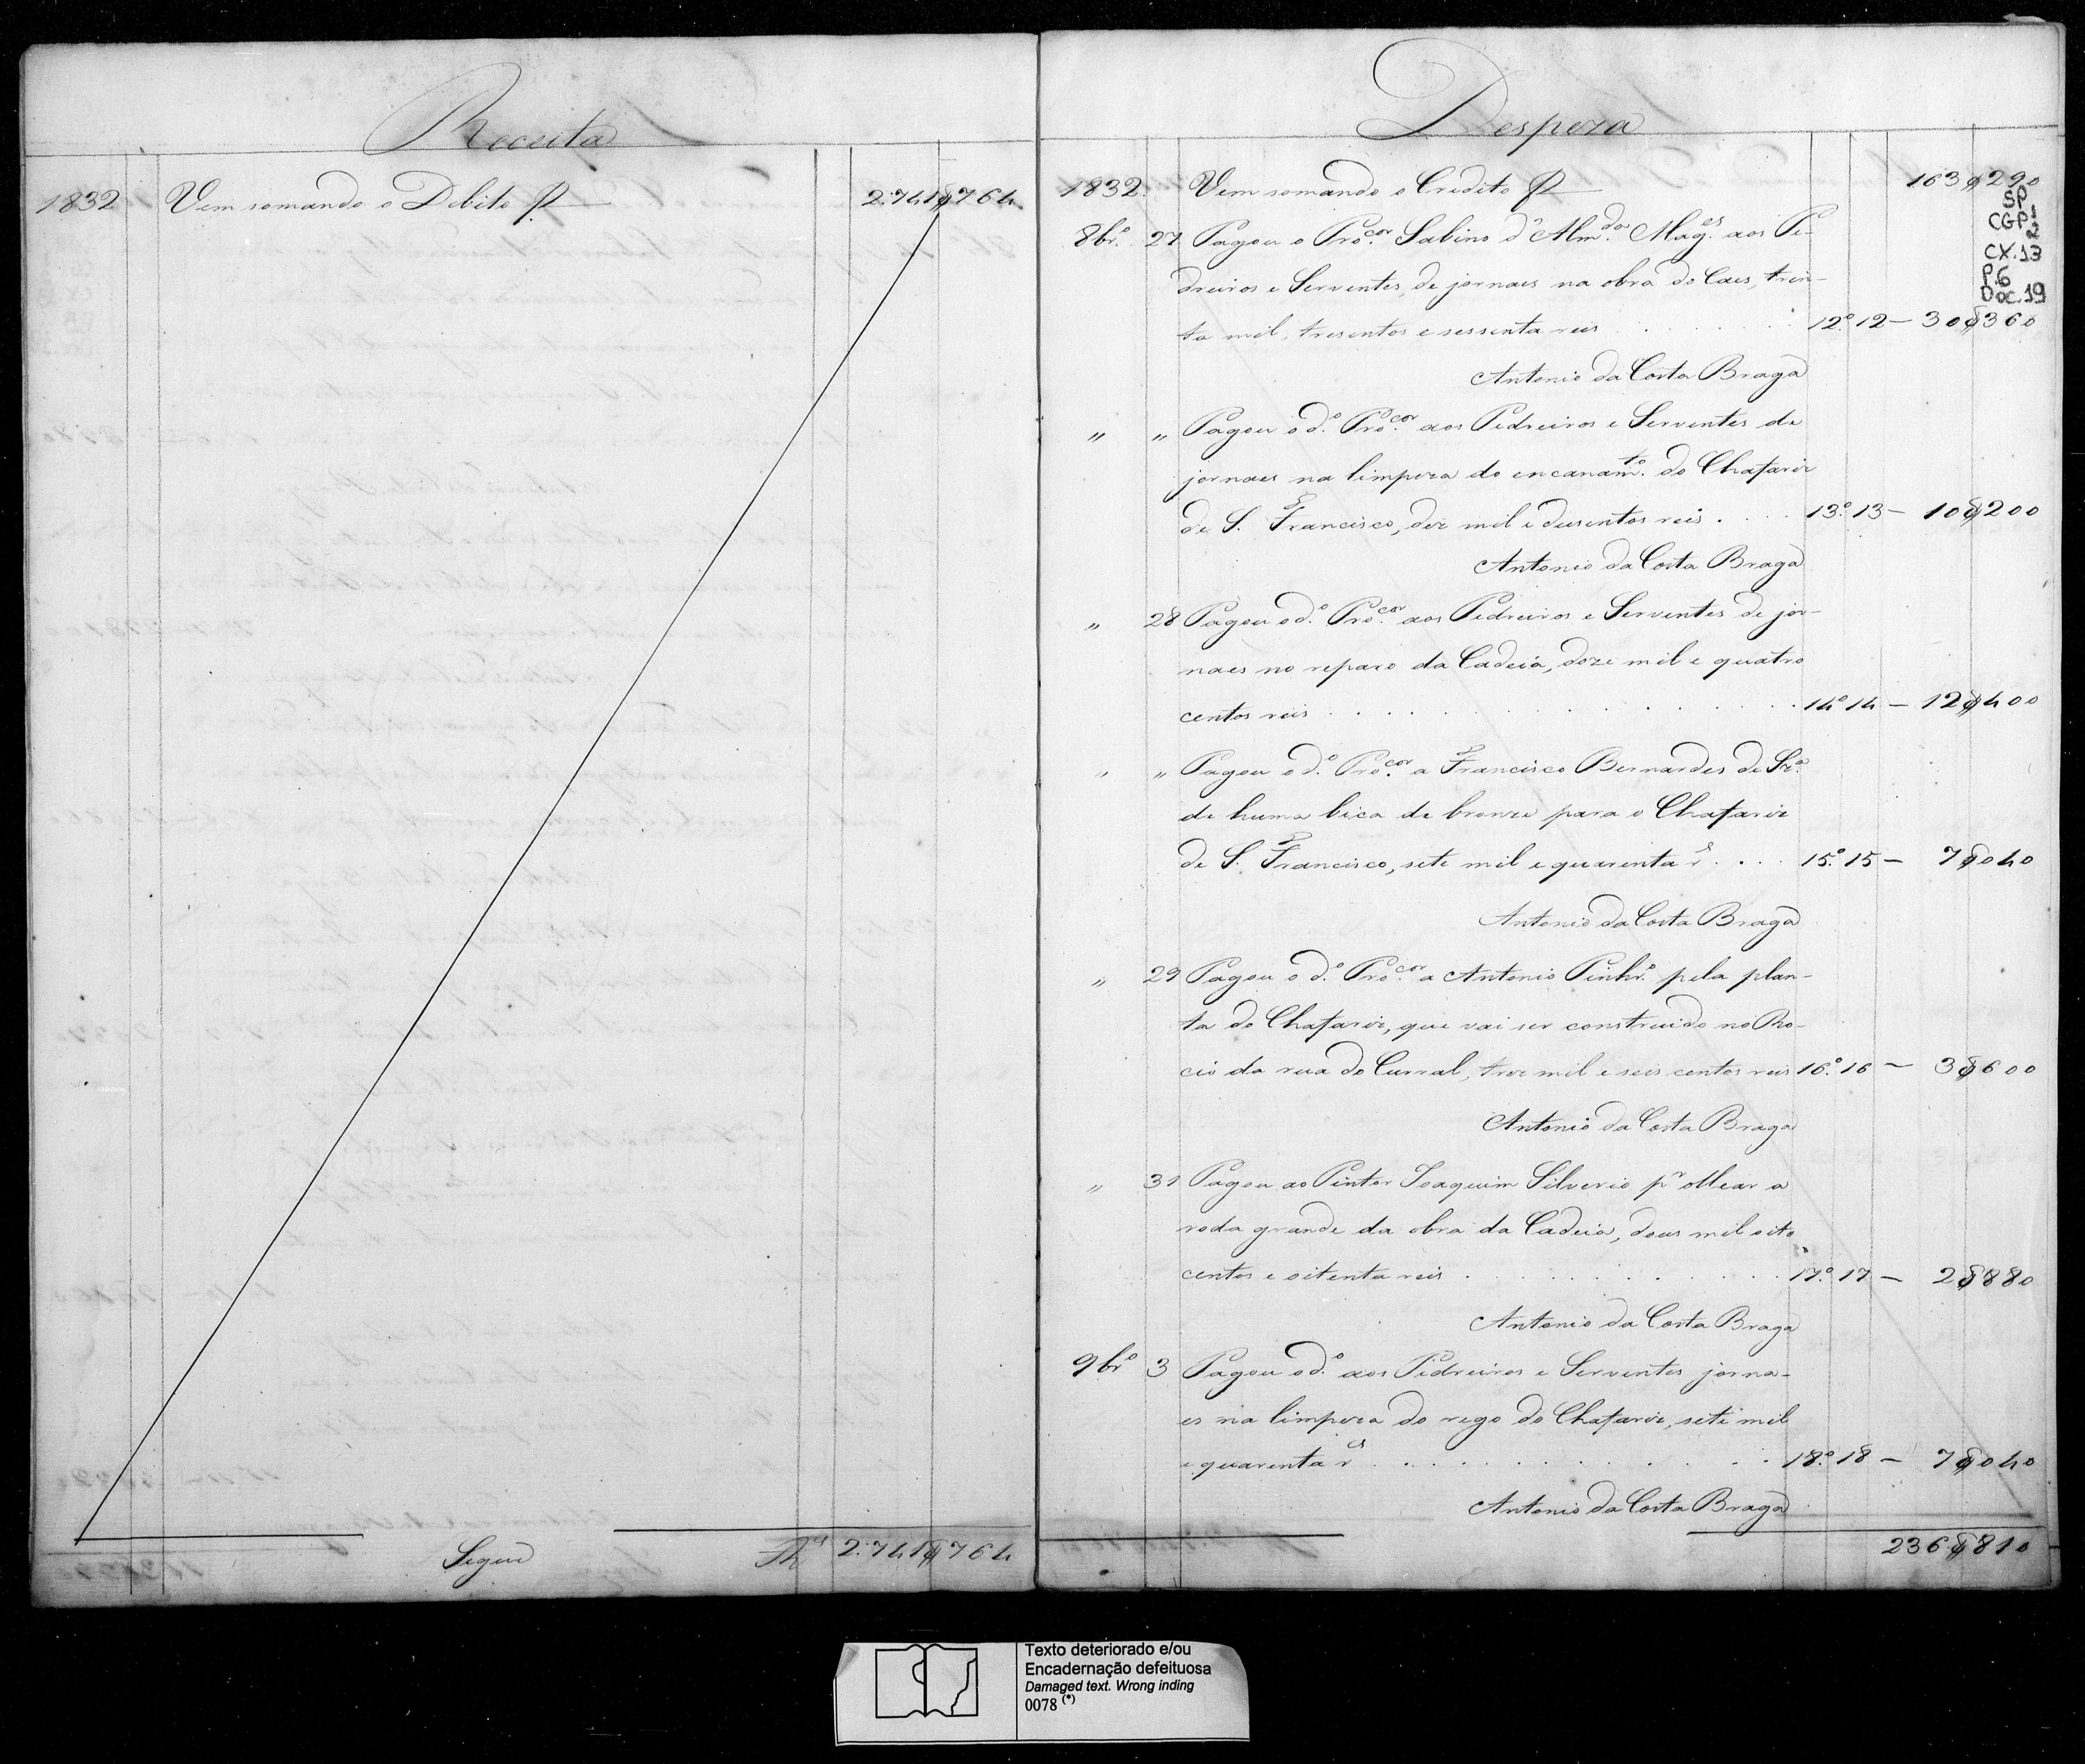 Receita
1832 Vem somando o Debito 2:741$764
Segue 2:741$764
Despeza
1832 Vem somando o Credito 163$290
SP
CGP 1
2
CX.13
P.6
Doc.19
8br.o 27 Pagou o Pro.cor Sabino d'Alm.da Mag.es aos Pe-
dreiros e Serventes, de jornaes na obra do Caes, trin-
ta mil, tresentos e sessenta reis . . . . . . 12.o 12 — 30$360
Antonio da Costa Braga
" " Pagou o d.o Pro.cor aos Pedreiros e Serventes de
jornaes na limpeza do encanam.to do Chafariz
de S. Francisco, dez mil e dusentos reis . . . . 13.o 13 — 10$200
Antonio da Costa Braga
" 28 Pagou o d.o Pro.cor aos Pedreiros e Serventes de jor-
naes no reparo da Cadeia, doze mil e quatro
centos reis . . . . . . . . . . 14.o 14 — 12$400
" " Pagou o d.o Pro.cor a Francisco Bernardes de Sz.a
de huma bica de bronze para o Chafariz
de S. Francisco, sete mil e quarenta rs . . . 15.o 15 — 7$040
Antonio da Costa Braga
" 29 Pagou o d.o Pro.cor a Antonio Pinhr.o pela plan-
ta do Chafariz, que vai ser construido no Ro-
cio da rua do Curral, trez mil e seis centos reis 16.o 16 — 3$600
Antonio da Costa Braga
" 31 Pagou ao Pintor Joaquim Silverio pr ollear a
roda grande da obra da Cadeia, dous mil oito
centos e oitenta reis . . . . . . . . . . 17.o 17 — 2$880
Antonio da Costa Braga
9br.o 3 Pagou o d.o aos Pedreiros e Serventes jorna-
es na limpeza do rego do Chafariz, sete mil
e quarenta rs . . . . . . . . . . 18.o 18 — 7$040
Antonio da Costa Braga
236$810
Texto deteriorado e/ou
Encadernação defeituosa
Damaged text. Wrong inding
0078 (*)